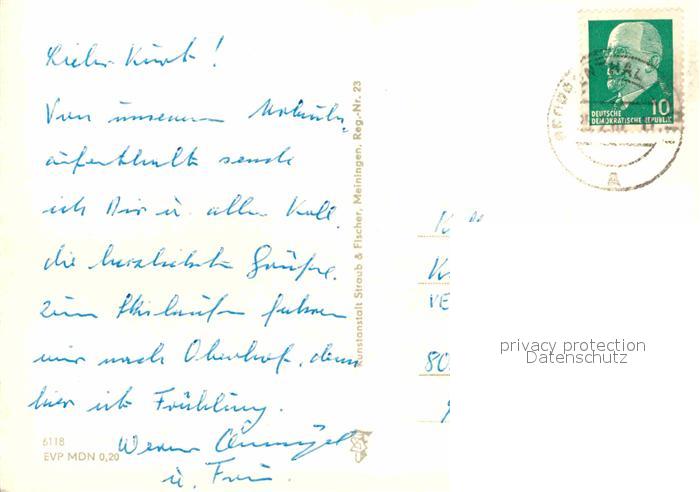 Lieber Kurt!
Von unserem
aufenthalt sende
ich Dir u. allen Koll.
die herzlichsten Grüße.
Zum Skilaufen fahren
wir nach Oberhof, denn
hier ist Frühling.
Werner
u. Frau.
6118
EVP MDN 0,20
Kunstanstalt Straub & Fischer, Meiningen, Reg.-Nr. 23
10
DEUTSCHE
DEMOKRATISCHE REPUBLIK
A
K
K
VE
80
privacy protection
Datenschutz